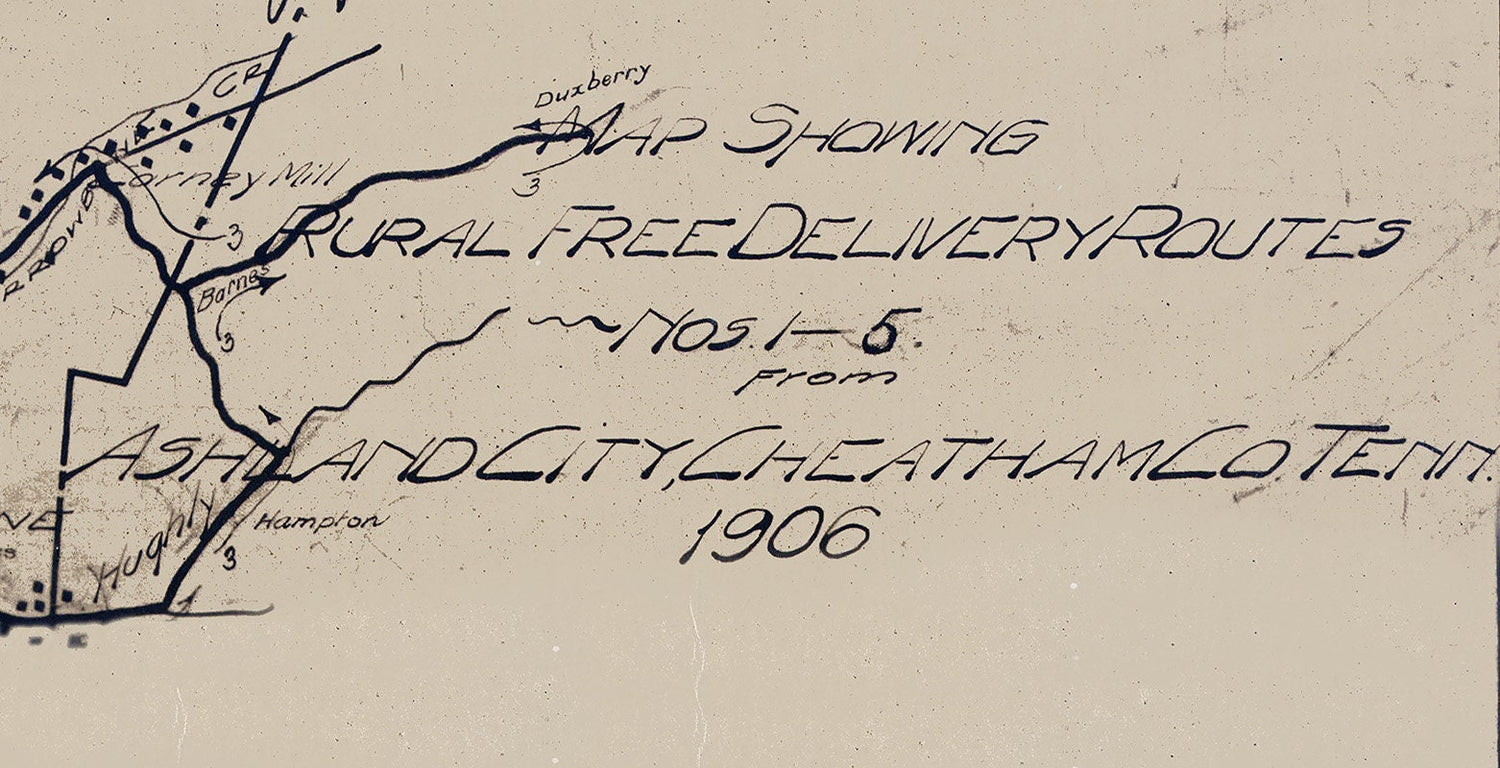 CR
Duxberry
MAP SHOWING
3
Mill
3
RURAL FREE DELIVERY ROUTES
Barnes
3
~NOS. 1—5.
From
ASHLAND CITY, CHEATHAM CO TENN.
Hughly
Hampton
3
1906